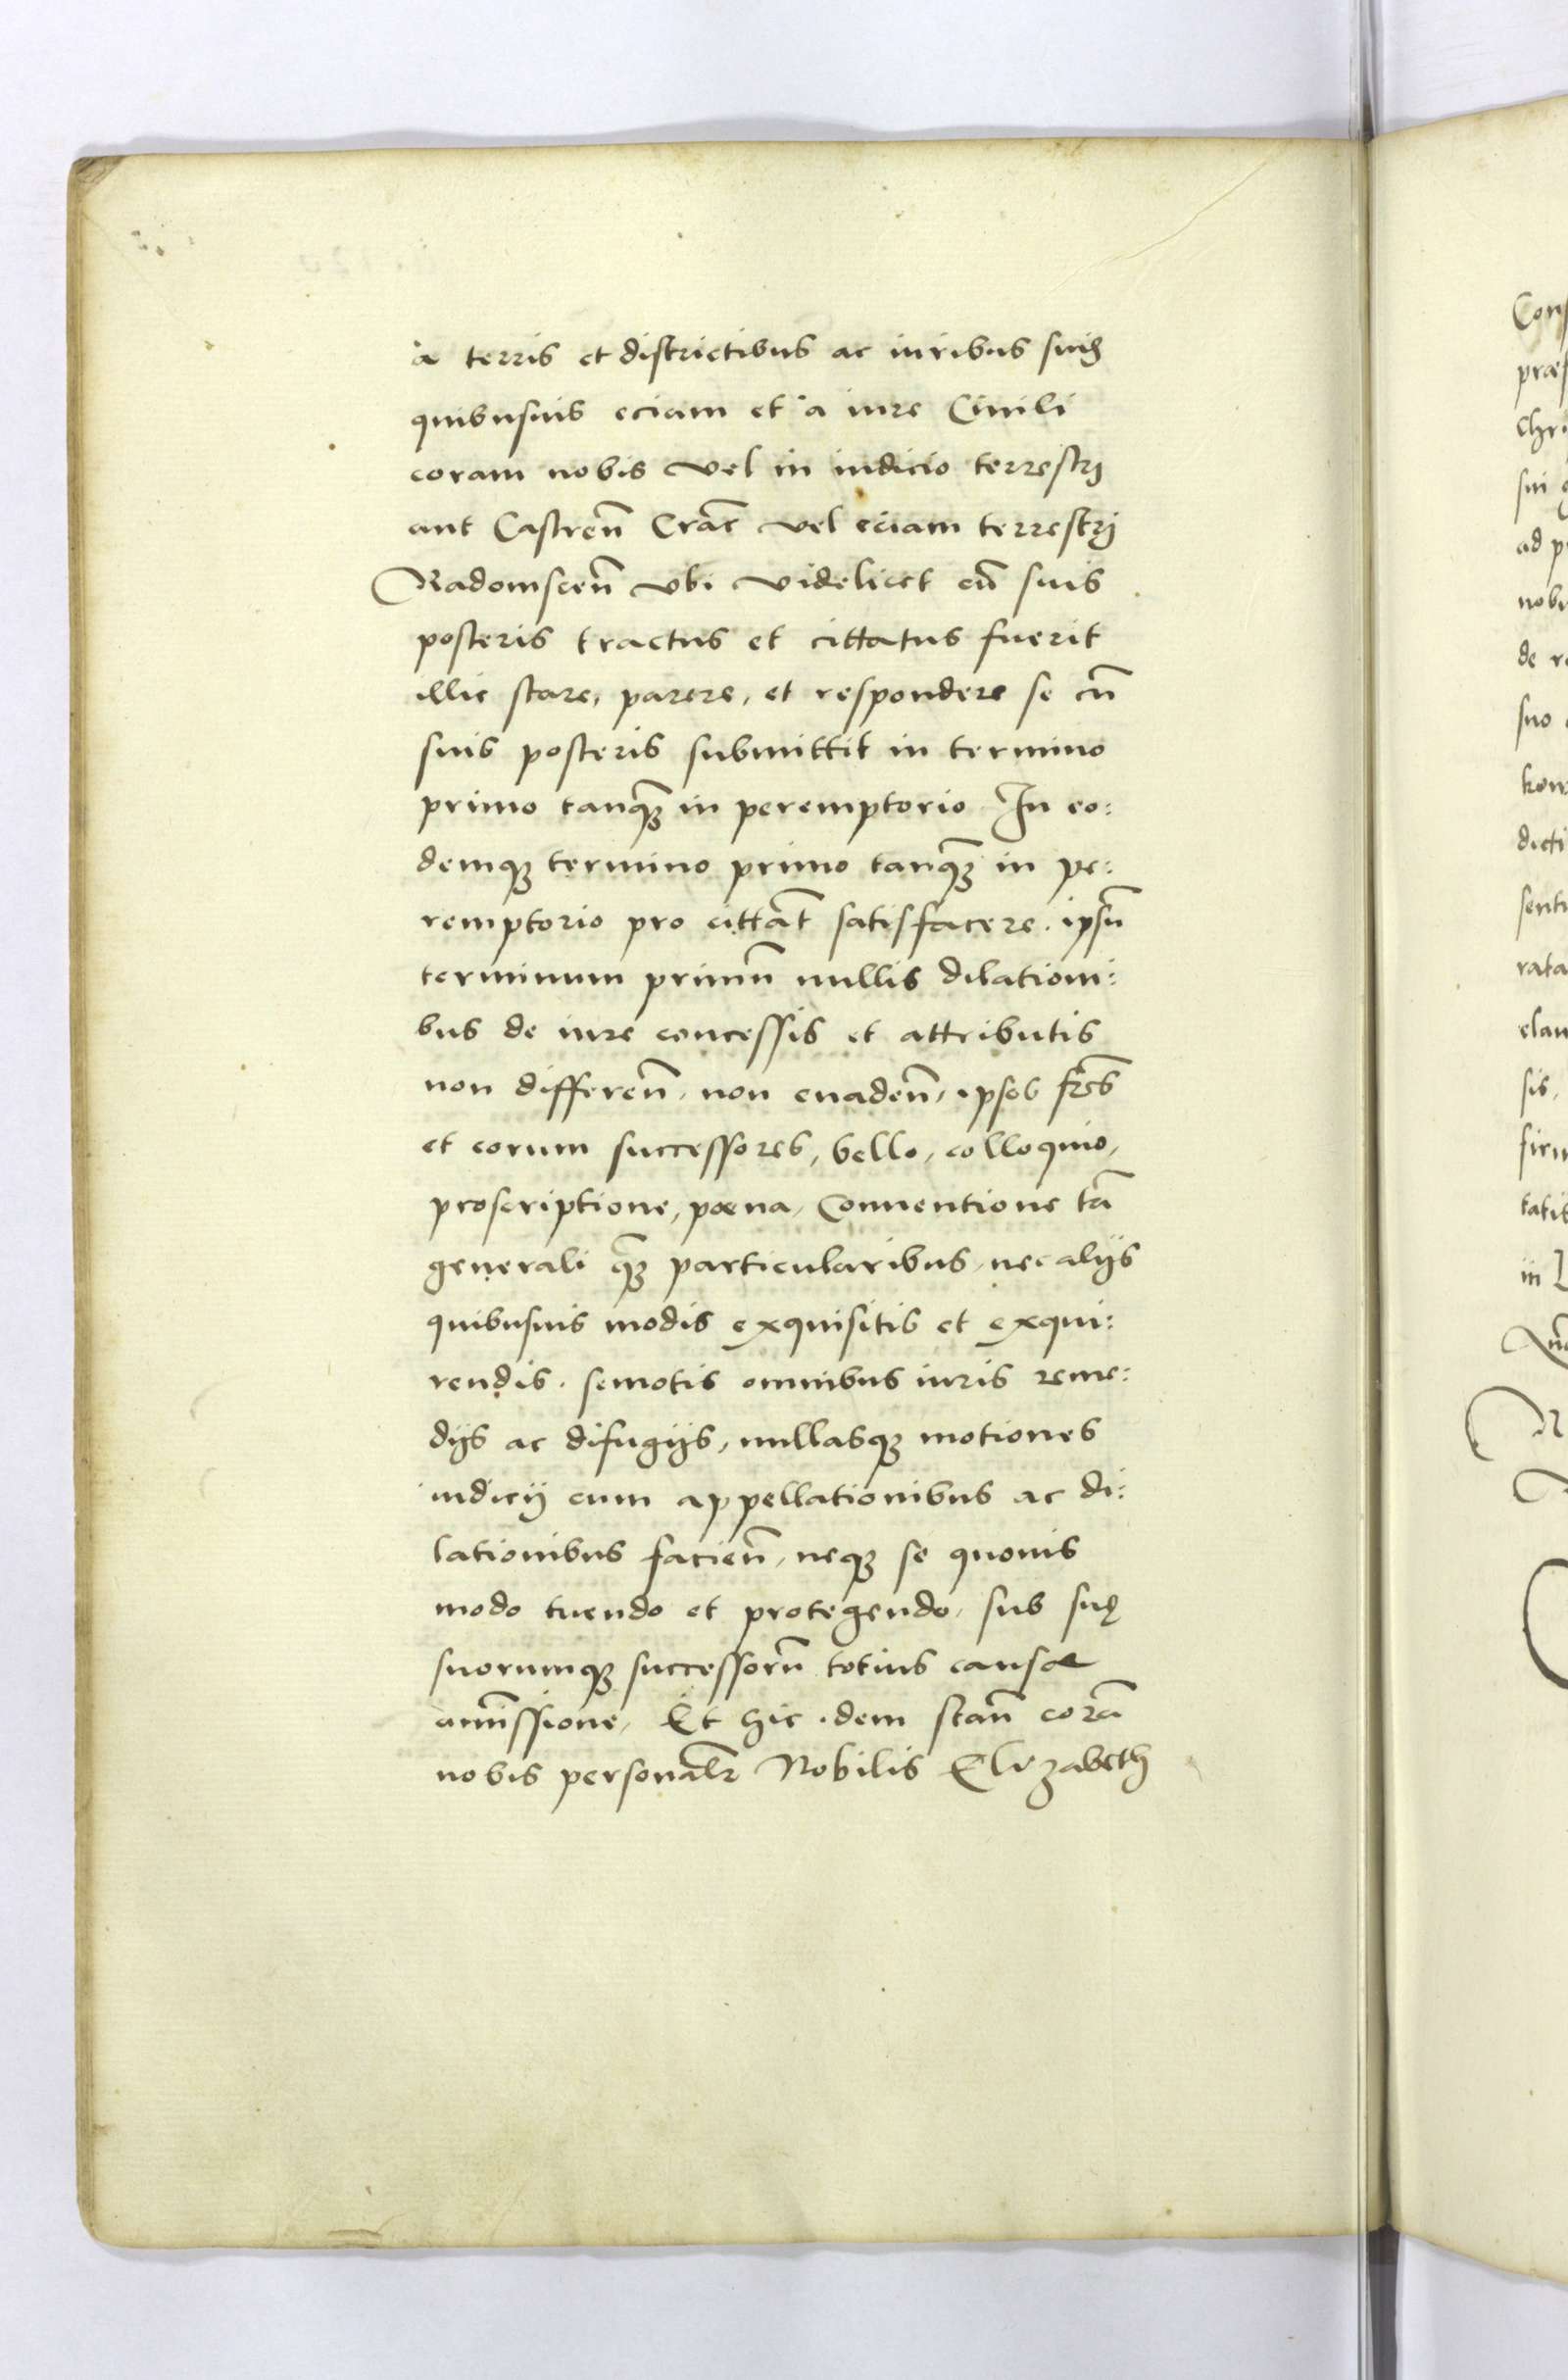 a terris et districtibus ac iuribus suis
quibusuis eciam et a iure Ciuili
coram nobis vel in iudicio terrestri
aut Castreñ Crac̃ vel eciam terrestri
Radomsceñ vbi videlicet cũ suis
posteris tractus et cittatus fuerit
illic stare, parere, et respondere se cũ
suis posteris submittit in termino
primo tanqꝫ in peremptorio In eo:
demqꝫ termino primo tanqꝫ in pe:
remptorio pro cittat̃ satisfacere. ipsũ
terminum primũ nullis dilationi:
bus de iure concessis et attributis
non differeñ, non euadeñ, ipsos fr̃es
et eorum successores, bello, colloquio,
proscriptione, poena, Conuentione tã
generali qꝫ particularibus, nec alijs
quibusuis modis exquisitis et exqui:
rendis. semotis omnibus iuris reme:
dijs ac difugijs, nullasqꝫ motiones
iudicij cum appellationibus ac di:
lationibus facieñ, neqꝫ se quouis
modo tuendo et protegendo, sub suę
suorumqꝫ successorũ totius causae
amĩssione, Et hic idem stañ corã
nobis personalr̃ Nobilis Elizabeth
Con
prae
Chri
sui
ad p
nobi
de r
suo
kow
dicti
senti
rata
clau
sis,
firm
tatis
in